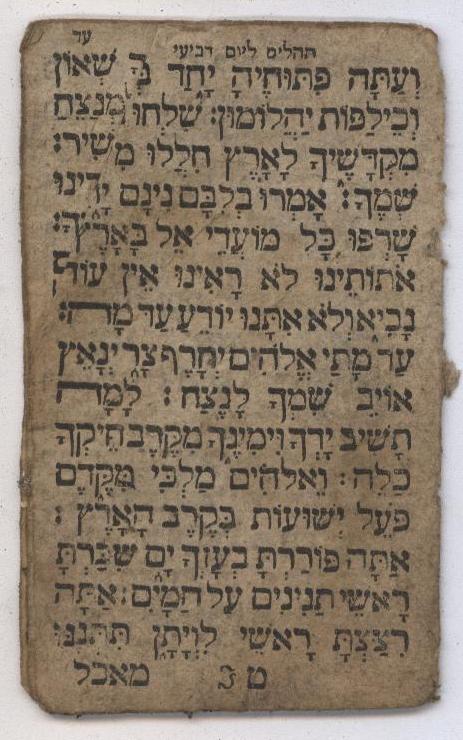 תהלים ליום רביעי עד
וְעַתָּה פִתּוּחֶיהָ יָחַד
וְכֵילַפּוֹת יַהֲלוֹמוּן: שִׁלְחוּ
מִקְדָּשֶׁיךָ לָאָרֶץ חִלְּלוּ
שְׁמֶךָ: אָמְרוּ בְלִבָּם נִינָם
שָׂרְפוּ כָּל מוֹעֲדֵי אֵל בָּאָרֶץ
אוֹתוֹתֵינוּ לֹא רָאִינוּ אֵין עוֹד
נָבִיא וְלֹא אִתָּנוּ יוֹדֵעַ עַד מָה:
עַד מָתַי אֱלֹהִים יְחָרֶף צָר יְנָאֵץ
אוֹיֵב שִׁמְךָ לָנֶצַח: לָמָּה
תָשִׁיב יָדְךָ וִימִינֶךָ מִקֶּרֶב חֵיקְךָ
כַלֵּה: וֵאלֹהִים מַלְכִּי מִקֶּדֶם
פּוֹעֵל יְשׁוּעוֹת בְּקֶרֶב הָאָרֶץ:
אַתָּה פוֹרַרְתָּ בְעָזְּךָ יָם שִׁבַּרְתָּ
רָאשֵׁי תַנִּינִים עַל הַמָּיִם: אַתָּה
רִצַּצְתָּ רָאשֵׁי לִוְיָתָן תִּתְּנֶנּוּ
ט 3 מאכל